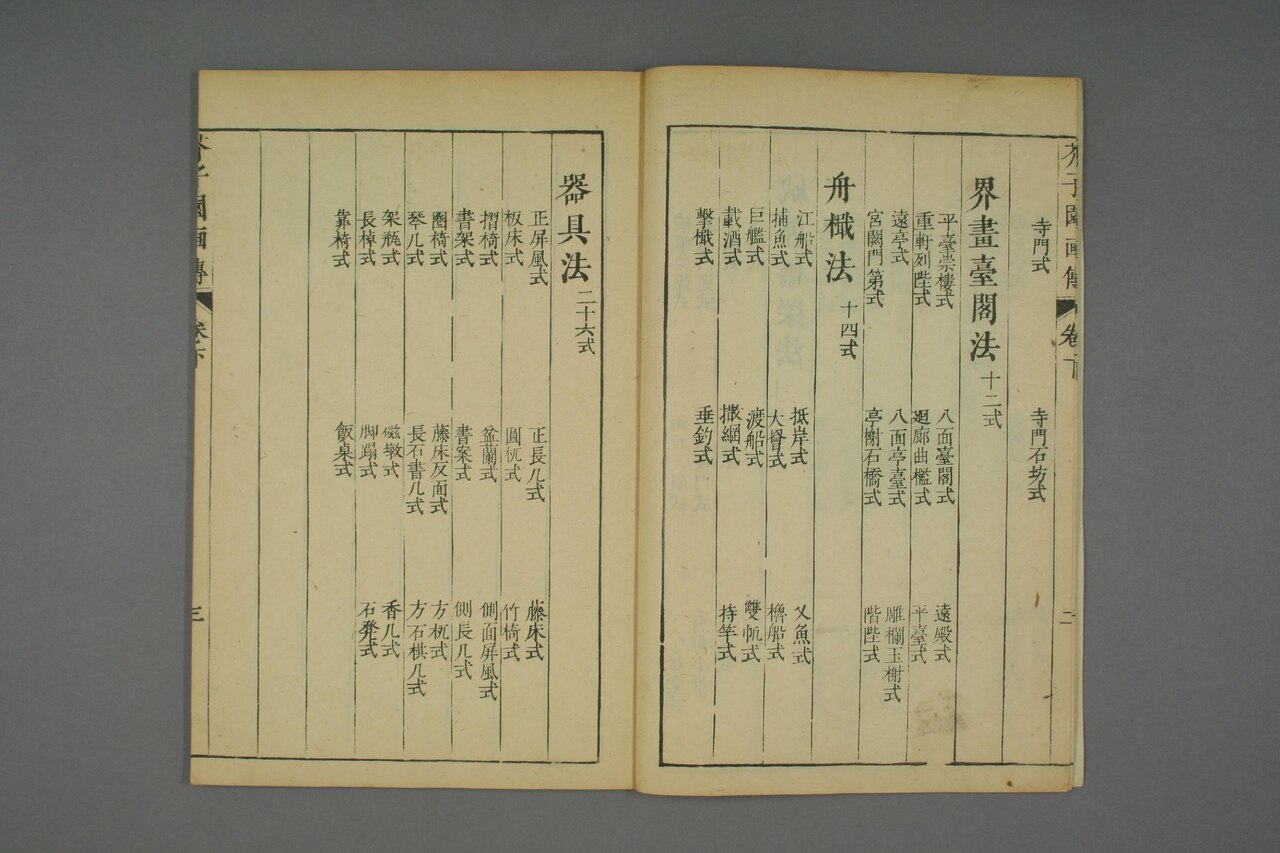 芥子園畫傳 卷下 二
寺門式 寺門石坊式
界畫臺閣法 十二式
平臺崇樓式 八面臺閣式 遠殿式
重軒列陛式 廻廊曲檻式 平臺式
遠亭式 八面亭臺式 雕欄玉榭式
宮闕門第式 亭榭石橋式 階陛式
舟檝法 十四式
江船式 抵岸式 乂魚式
捕魚式 大罾式 櫓船式
巨艦式 渡船式 雙帆式
載酒式 撒網式 持竿式
擊檝式 垂釣式
器具法 二十六式
正屏風式 正長几式 藤床式
板床式 圓杌式 竹椅式
摺椅式 盆蘭式 側面屏風式
書架式 書案式 側長几式
圈椅式 藤床反面式 方杌式
琴几式 長石書几式 方石棋几式
架瓶式 磁墩式 香几式
長棹式 脚蹋式 石凳式
靠椅式 飯桌式
芥子園畫傳 卷下 三